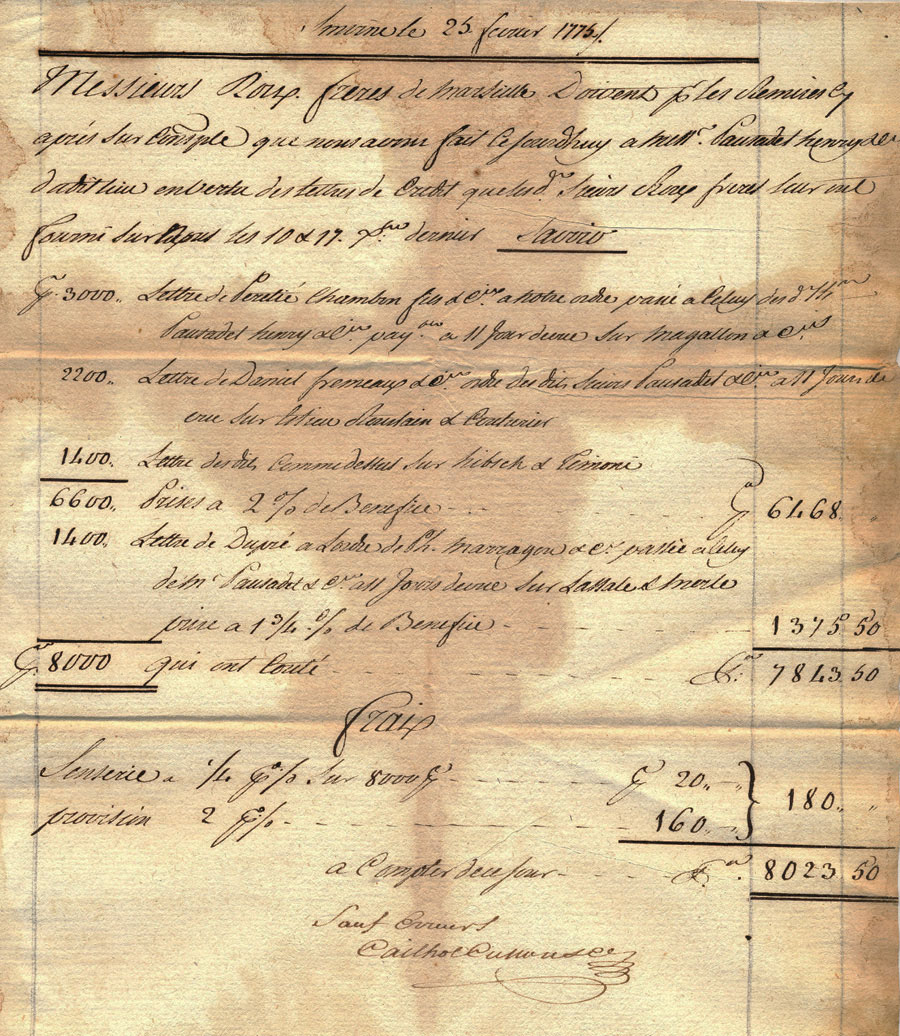 Smirne le 25 fevrier 1775.
Messieurs Roux freres de Marseille Doivent pr les Remises cy
après sur Constple que nous avons fait ce jourdhuy a Messrs. Pausadet henry & Cie
dudit lieu en vertu des lettres de Credit que lesds. Sieurs Roux freres leur ont
fourni sur les 10 & 17. dernier Savoir
3000,, Lettre de Peretié Chambon fils & Cie a notre ordre passé a Celuy des d.
Pausadet henry & Cie payle a 11 Jour de vue sur Magallon & Cie
2200,, Lettre de Daniel fremeaux & Cie ordre des dits Sieurs Pausadet & Cie a 11 Jours de
vue sur Roustain & Couturier
1400,, Lettre des dits Comme dessus sur hibsch & Timoni
6600,, Prises a 2 % de Benefice 6468 ,,
1400,, Lettre de Dupré a Lordre de Ph. Marragon & Ce passée a Celuy
de Mr Pausadet & Ce a 11 Jours de vue sur Lassale & Merle
prise a 1 3/4 % de Benefice 1375 50
8000 qui ont Couté 7843 50
fraix
Senserie a 1/4 P% sur 8000 20,, ,,
provision 2 P% 160 ,, 180,, ,,
a Compter de ce Jour 8023 50
Sauf Erreurs
Cailhol